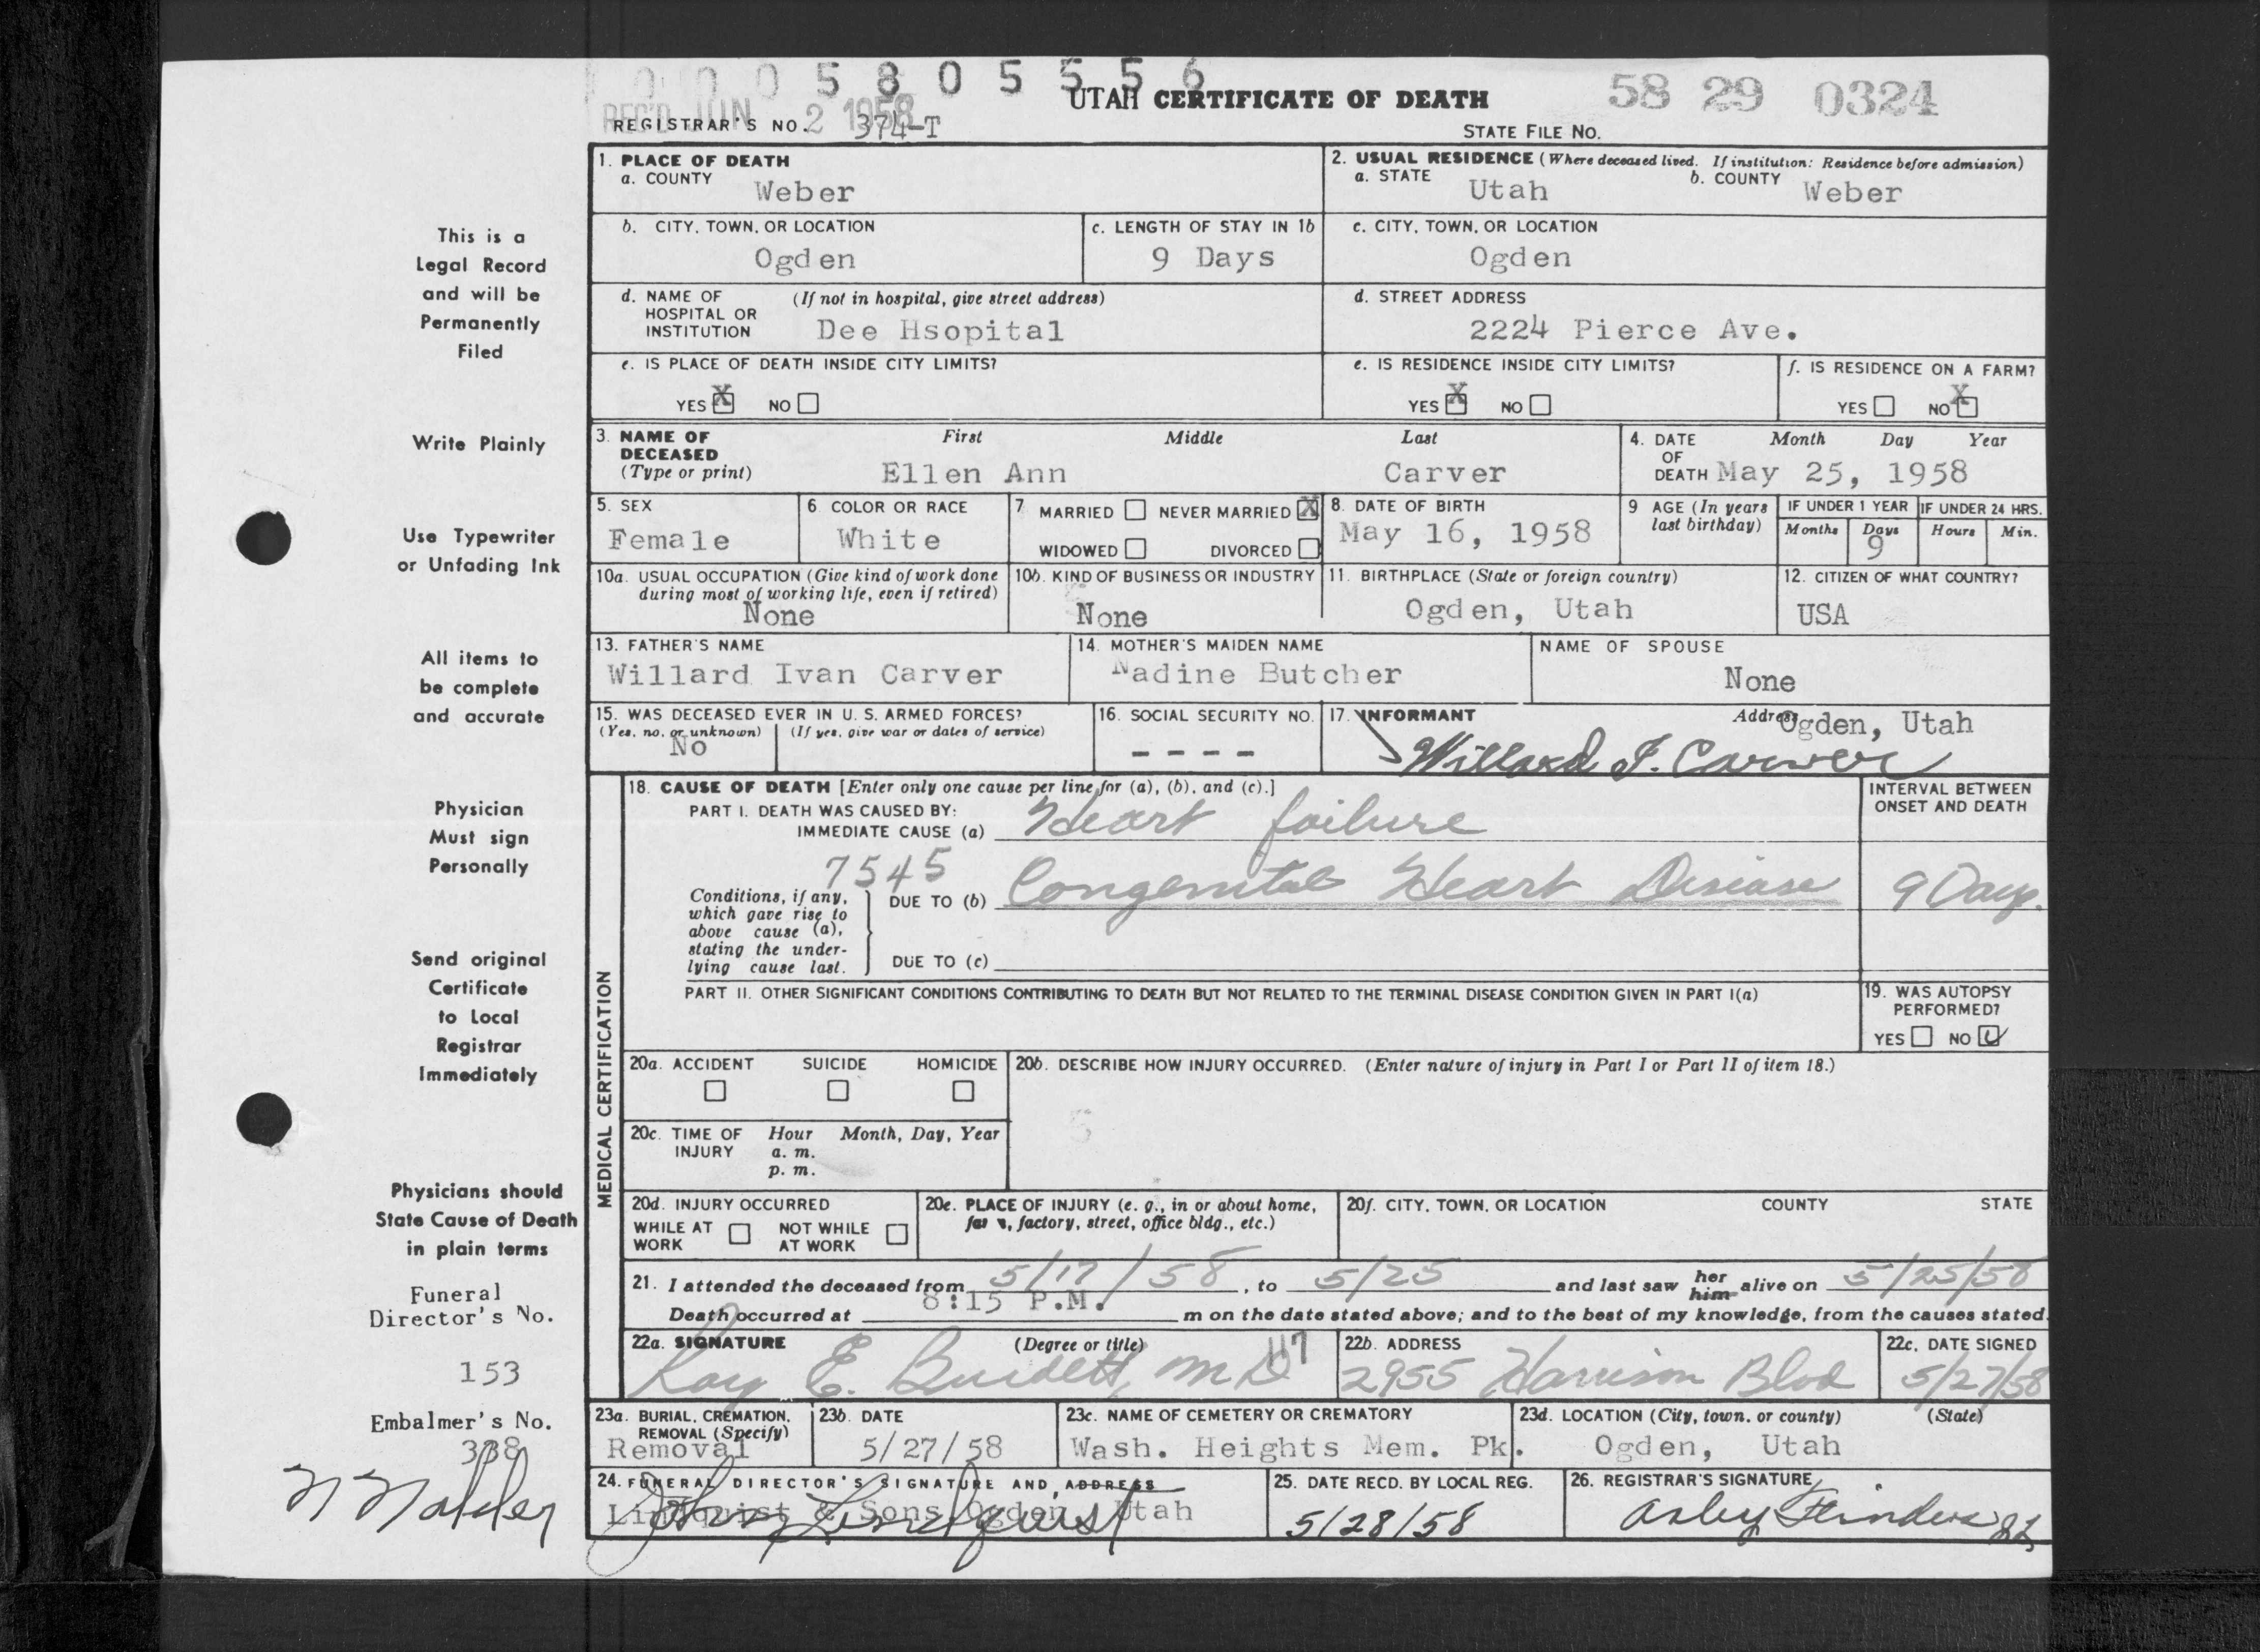 0 0 0 5 8 0 5 5 5 6
REC'D JUN 2 1958
UTAH CERTIFICATE OF DEATH
58 29 0324
REGISTRAR'S NO. 374-T
STATE FILE NO.
1. PLACE OF DEATH
a. COUNTY Weber
2. USUAL RESIDENCE (Where deceased lived. If institution: Residence before admission)
a. STATE Utah b. COUNTY Weber
b. CITY, TOWN, OR LOCATION Ogden
c. LENGTH OF STAY IN 1b 9 Days
c. CITY, TOWN, OR LOCATION Ogden
d. NAME OF HOSPITAL OR INSTITUTION (If not in hospital, give street address) Dee Hsopital
d. STREET ADDRESS 2224 Pierce Ave.
e. IS PLACE OF DEATH INSIDE CITY LIMITS?
YES X NO
e. IS RESIDENCE INSIDE CITY LIMITS?
YES X NO
f. IS RESIDENCE ON A FARM?
YES NO X
3. NAME OF DECEASED (Type or print)
First Middle Last
Ellen Ann Carver
4. DATE OF DEATH Month Day Year
May 25, 1958
5. SEX Female
6 COLOR OR RACE White
7 MARRIED NEVER MARRIED X
WIDOWED DIVORCED
8. DATE OF BIRTH May 16, 1958
9 AGE (In years last birthday)
IF UNDER 1 YEAR Months Days 9
IF UNDER 24 HRS. Hours Min.
10a. USUAL OCCUPATION (Give kind of work done during most of working life, even if retired) None
10b. KIND OF BUSINESS OR INDUSTRY None
11. BIRTHPLACE (State or foreign country) Ogden, Utah
12. CITIZEN OF WHAT COUNTRY? USA
13. FATHER'S NAME Willard Ivan Carver
14. MOTHER'S MAIDEN NAME Nadine Butcher
NAME OF SPOUSE None
15. WAS DECEASED EVER IN U. S. ARMED FORCES?
(Yes, no, or unknown) (If yes, give war or dates of service)
No
16. SOCIAL SECURITY NO. - - - -
17. INFORMANT Address Ogden, Utah
Willard I. Carver
18. CAUSE OF DEATH [Enter only one cause per line for (a), (b), and (c).]
INTERVAL BETWEEN ONSET AND DEATH
PART I. DEATH WAS CAUSED BY:
IMMEDIATE CAUSE (a) Heart failure
7545
Conditions, if any, which gave rise to above cause (a), stating the underlying cause last.
DUE TO (b) Congenital Heart Disease 9 Days.
DUE TO (c)
PART II. OTHER SIGNIFICANT CONDITIONS CONTRIBUTING TO DEATH BUT NOT RELATED TO THE TERMINAL DISEASE CONDITION GIVEN IN PART I(a)
19. WAS AUTOPSY PERFORMED?
YES NO
MEDICAL CERTIFICATION
20a. ACCIDENT SUICIDE HOMICIDE
20b. DESCRIBE HOW INJURY OCCURRED. (Enter nature of injury in Part I or Part II of item 18.)
20c. TIME OF INJURY Hour Month, Day, Year
a. m.
p. m.
20d. INJURY OCCURRED
WHILE AT WORK NOT WHILE AT WORK
20e. PLACE OF INJURY (e. g., in or about home, factory, street, office bldg., etc.)
20f. CITY, TOWN, OR LOCATION COUNTY STATE
21. I attended the deceased from 5/17/58, to 5/25 and last saw her him alive on 5/25/58
Death occurred at 8:15 P.M. m on the date stated above; and to the best of my knowledge, from the causes stated.
22a. SIGNATURE (Degree or title) 117
Ray E. Burdett, M D
22b. ADDRESS 2955 Harrison Blvd
22c. DATE SIGNED 5/27/58
23a. BURIAL, CREMATION, REMOVAL (Specify) Removal
23b. DATE 5/27/58
23c. NAME OF CEMETERY OR CREMATORY Wash. Heights Mem. Pk.
23d. LOCATION (City, town, or county) (State) Ogden, Utah
24. FUNERAL DIRECTOR'S SIGNATURE AND ADDRESS
Lindquist & Sons Ogden, Utah
John Lindquist
25. DATE RECD. BY LOCAL REG. 5/28/58
26. REGISTRAR'S SIGNATURE
This is a
Legal Record
and will be
Permanently
Filed
Write Plainly
Use Typewriter
or Unfading Ink
All items to
be complete
and accurate
Physician
Must sign
Personally
Send original
Certificate
to Local
Registrar
Immediately
Physicians should
State Cause of Death
in plain terms
Funeral
Director's No.
153
Embalmer's No.
338